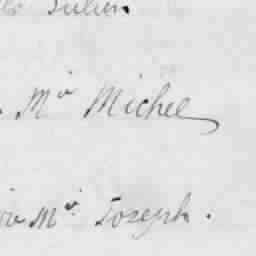 Julien
Mr Michel
Mr Joseph.